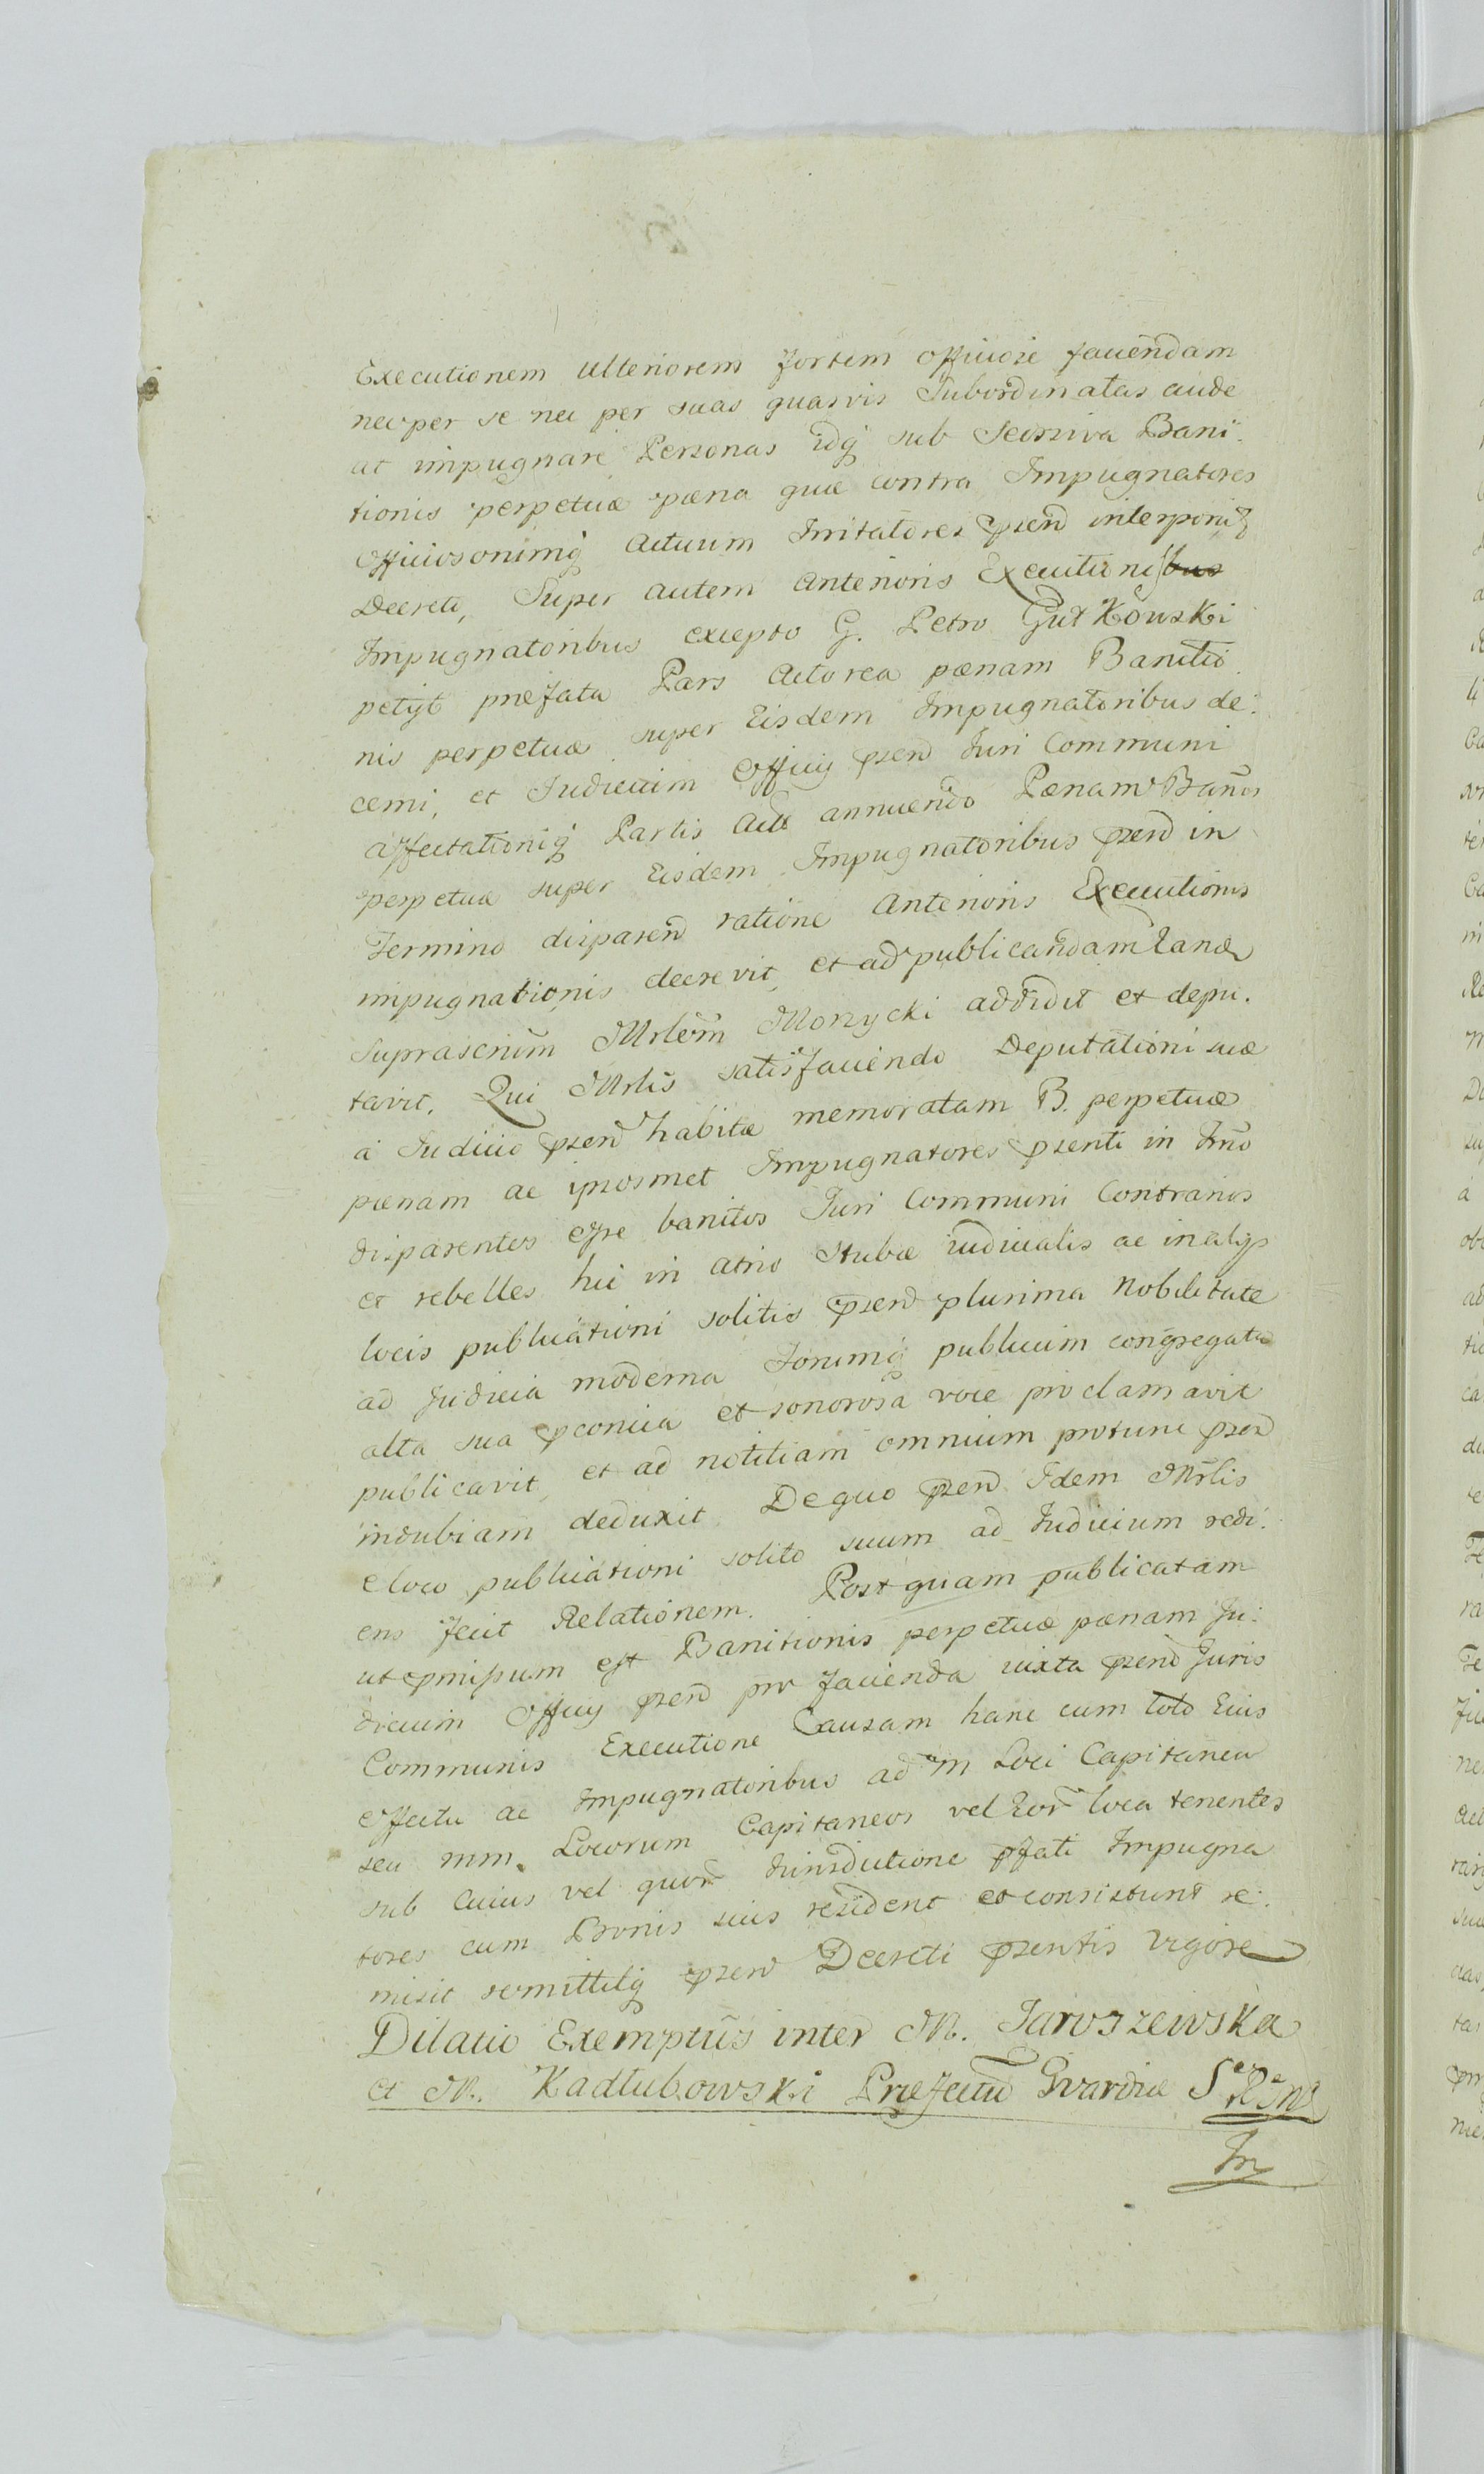 Executionem ulteriorem fortem officiose faciendam
nec per se nec per suas quasvis Subordinatas aude
at impugnare Personas idq sub Secisiva Bani:
tionis perpetuæ pæna quæ contra Impugnatores
Officiosorumq Actuum Irritatores præn interponitq
Decreti, Super autem Anterioris Executionis
Impugnatoribus excepto G. Petro Gutkowski
petijt præfata Pars Actorea pænam Banitio
nis perpetuæ super Eisdem Impugnatoribus de:
cerni, et Judicium Officij præn Juri Communi
affectationiq Partis Actæ annuendo Pænam Bañis
perpetuæ super Eisdem Impugnatoribus præn in
Termino disparen ratione Anterioris Executionis
impugnationis decrevit, et ad publicandam Eand
suprascrium Mrlem Morzycki addidit et depu:
tavit, Qui Mrlis satisfaciendo Deputationi suæ
a Judicio præn habitæ memoratam B. perpetuæ
pænam ac ipsosmet Impugnatores præsenti in Trño
disparentes esse banitos Juri Communi Contrarios
et rebelles hic in atrio Stubæ iudicialis ac in alijs
locis publicationi solitis præn plurima Nobilitate
ad Judicia moderna Forumq publicum congregata
alta sua præconica et sonorosa voce proclamavit
publicavit, et ad notitiam omnium protunc præn
indubiam deduxit. De quo præn Idem Mrlis
e loco publicationi solito suum ad Judicium redi:
ens fecit Relationem. Post quam publicatam
ut præmissum est Banitionis perpetuæ pænam Ju:
dicium Officij præn pro facienda iuxta præn Juris
Communis Executione Causam hanc cum toto Eius
effectu ac Impugnatoribus ad m Loci Capitaneu
seu mm. Locorum Capitaneos vel Eor loca tenentes
sub cuius vel quor Iurisdictione pfati Impugna
tores cum Bonis suis resident et consistunt re:
misit remittitq præn Decreti præsentis Vigore
Dilatio Exemptus inter M. Jaroszewska
et M. Kadłubowski Præfectu Gvardiæ S RM